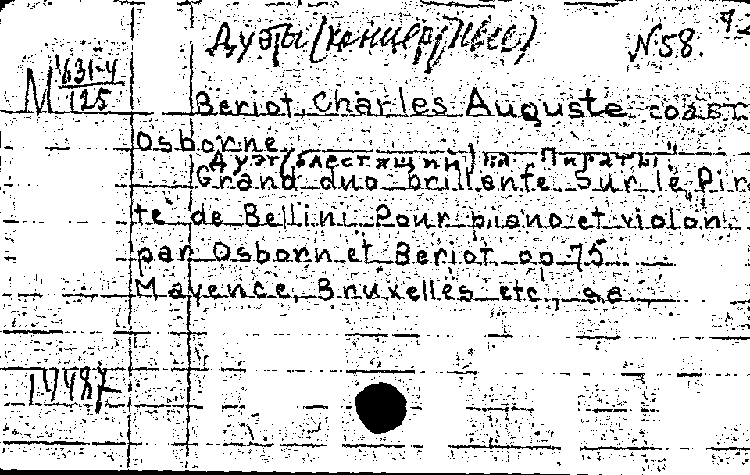 Дуэты (концертные) N 58.
М 631-4
125
Beriot, Charles Auguste соавт
Osborne
Дуэт (блестящий) на "Пираты"
Grand duo brillante sur le Pir
te de Bellini pour piano et violon
par Osborn et Beriot op 75
Mayence, Bruxelles etc, s.a.
14487